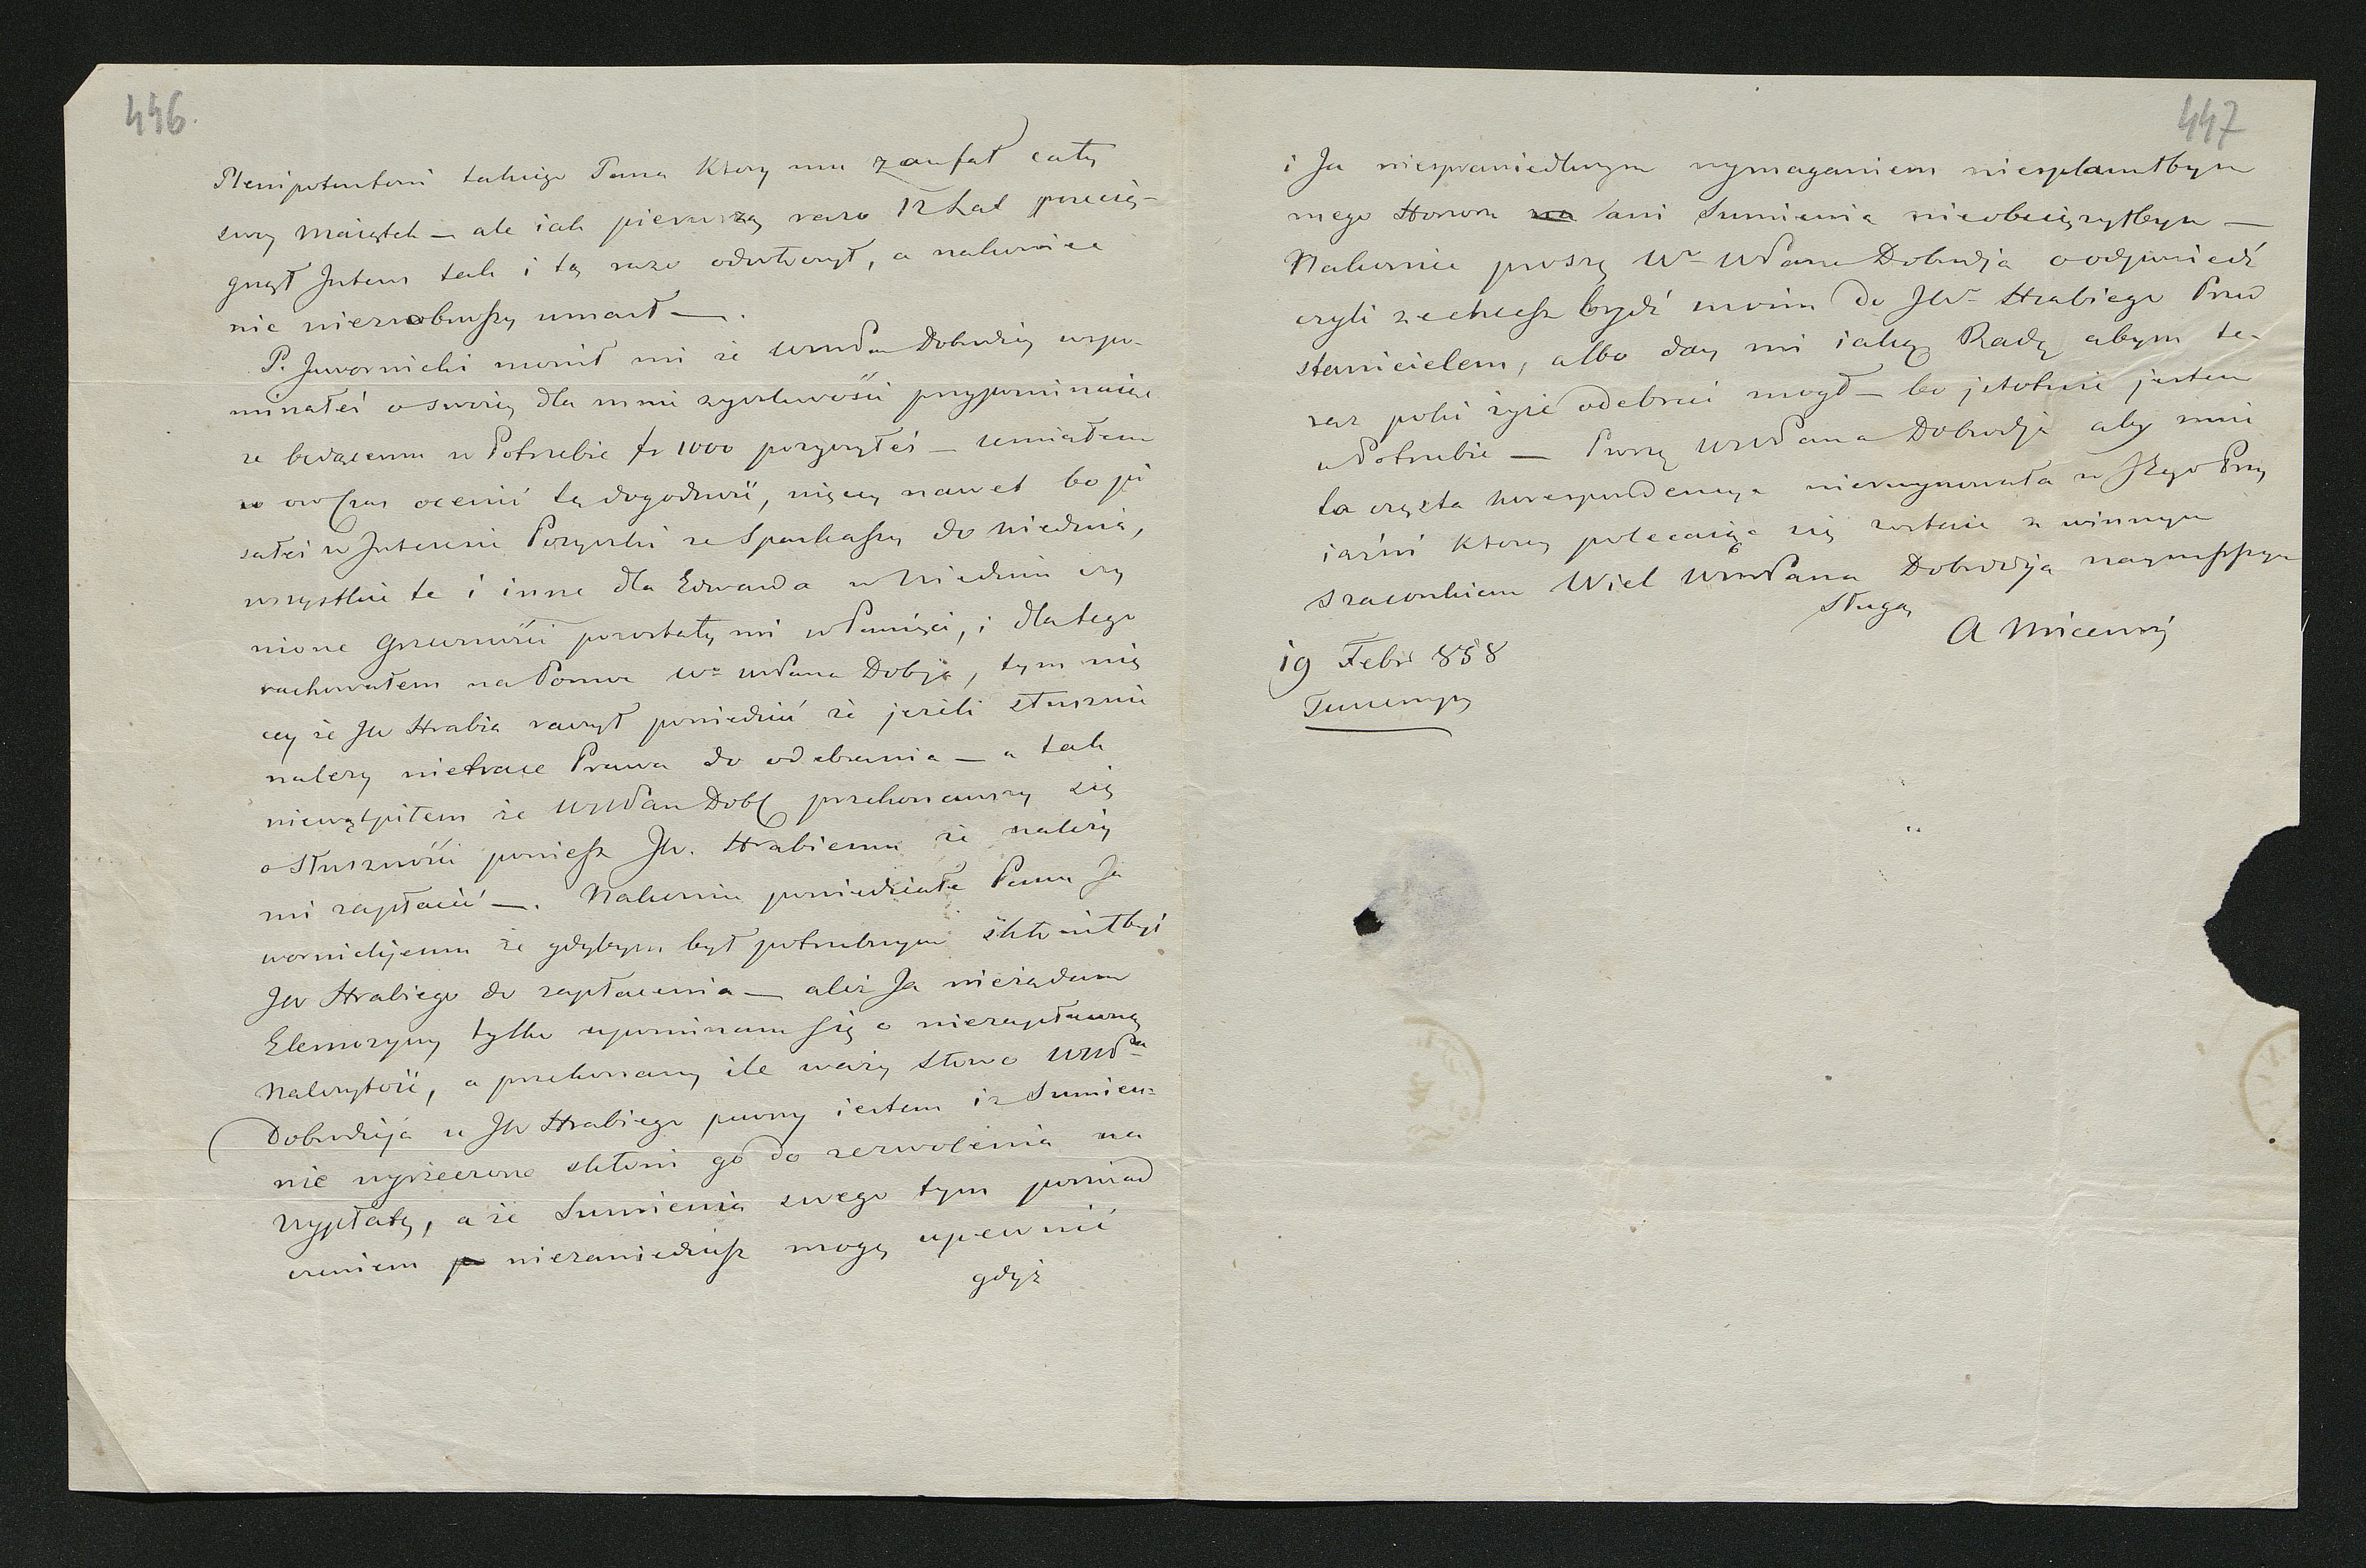 446.
Plenipotentowi takiego Pana Ktory mu zaufał cały
swoy Maiątek — ale iak pierwszą razą 12 Lat przecią-
gnął Interes tak i tą razą odwłoczył, a nakoniec
nic niezrobiwszy umarł —.
P. Jawornicki mowił mi że WmPan Dobrodziey wspo-
minałeś o swoiey dla mnie zyczliwości przypominaiąc
ze będącemu w Potrzebie fr 1000 pozyczyłeś — Umiałem
w ow czas ocenić tą dogodność, więcey nawet bo pi
sałeś w Interesie Pozyczki ze Sparkassy do Wiednia,
wszystkie te i inne dla Edwarda w Wiedniu czy
nione Grzeczności pozostały mi w Pamięci, i dlatego
rachowałem na Pomoc Wo WPana Dobja, tym wię
cey że JW Hrabia raczył powiedzieć że jezeli słusznie
nalezy nietrace Prawa do odebrania — a tak
niewątpiłem że WMPan Dob przekonawszy się
o słuszności powiesz JW. Hrabiemu że nalezy
mi zapłacić —. Nakoniec powiedziałe Panu Ja
wornickijemu że gdybym był potrzebnym skłoniłbyś
JW Hrabiego do zapłacenia — aleć Ja nieżądam
Elemozyny tylko upominam się o niezapłaconą
Nalezytość, a przekonany ile wazy słowo WMPa
Dobrodzieja u JW Hrabiego pewny iestem iz Sumien=
nie wyrzeczone skłoni go do zezwolenia na
wypłatę, a że Sumienia swego tym poswiad
czeniem niezawiedziesz mogę upewnić
gdyż
447
i Ja niesprawiedliwym wymaganiem niesplamiłbym
mego Honoru ani Sumienia nieobciązyłbym —
Nakoniec proszę Wo WPana Dobrodzja o odpowiedź
czyli zechcesz bydź moim do JWo Hrabiego Prze
stawicielem, albo day mi iaką Radę abym te-
raz poki żyie odebrać mogł — bo jstotnie jestem
w Potrzebie — Proszę WMPana Dobrodzja aby mnie
ta częsta korespondencya nie w Jego Przy
iaźni Ktorey polecaiąc się zostaie z winnym
szacunkiem Wiel WmPana Dobrodzja nayniższym
Sługą
A
19 Febr 858